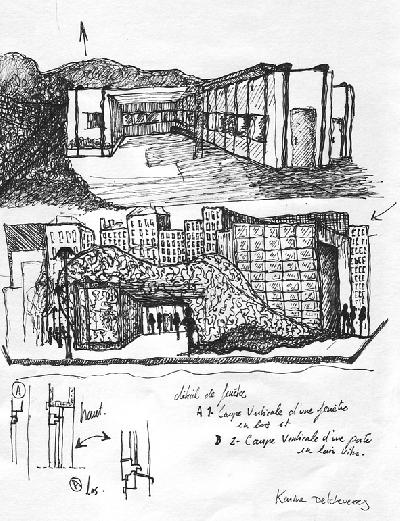 détail de fenêtre
A 1- Coupe Verticale d'une fenêtre
en bas et
B 2- Coupe Verticale d'une porte
en bois vitrée.
A
haut.
B bas.
Karine